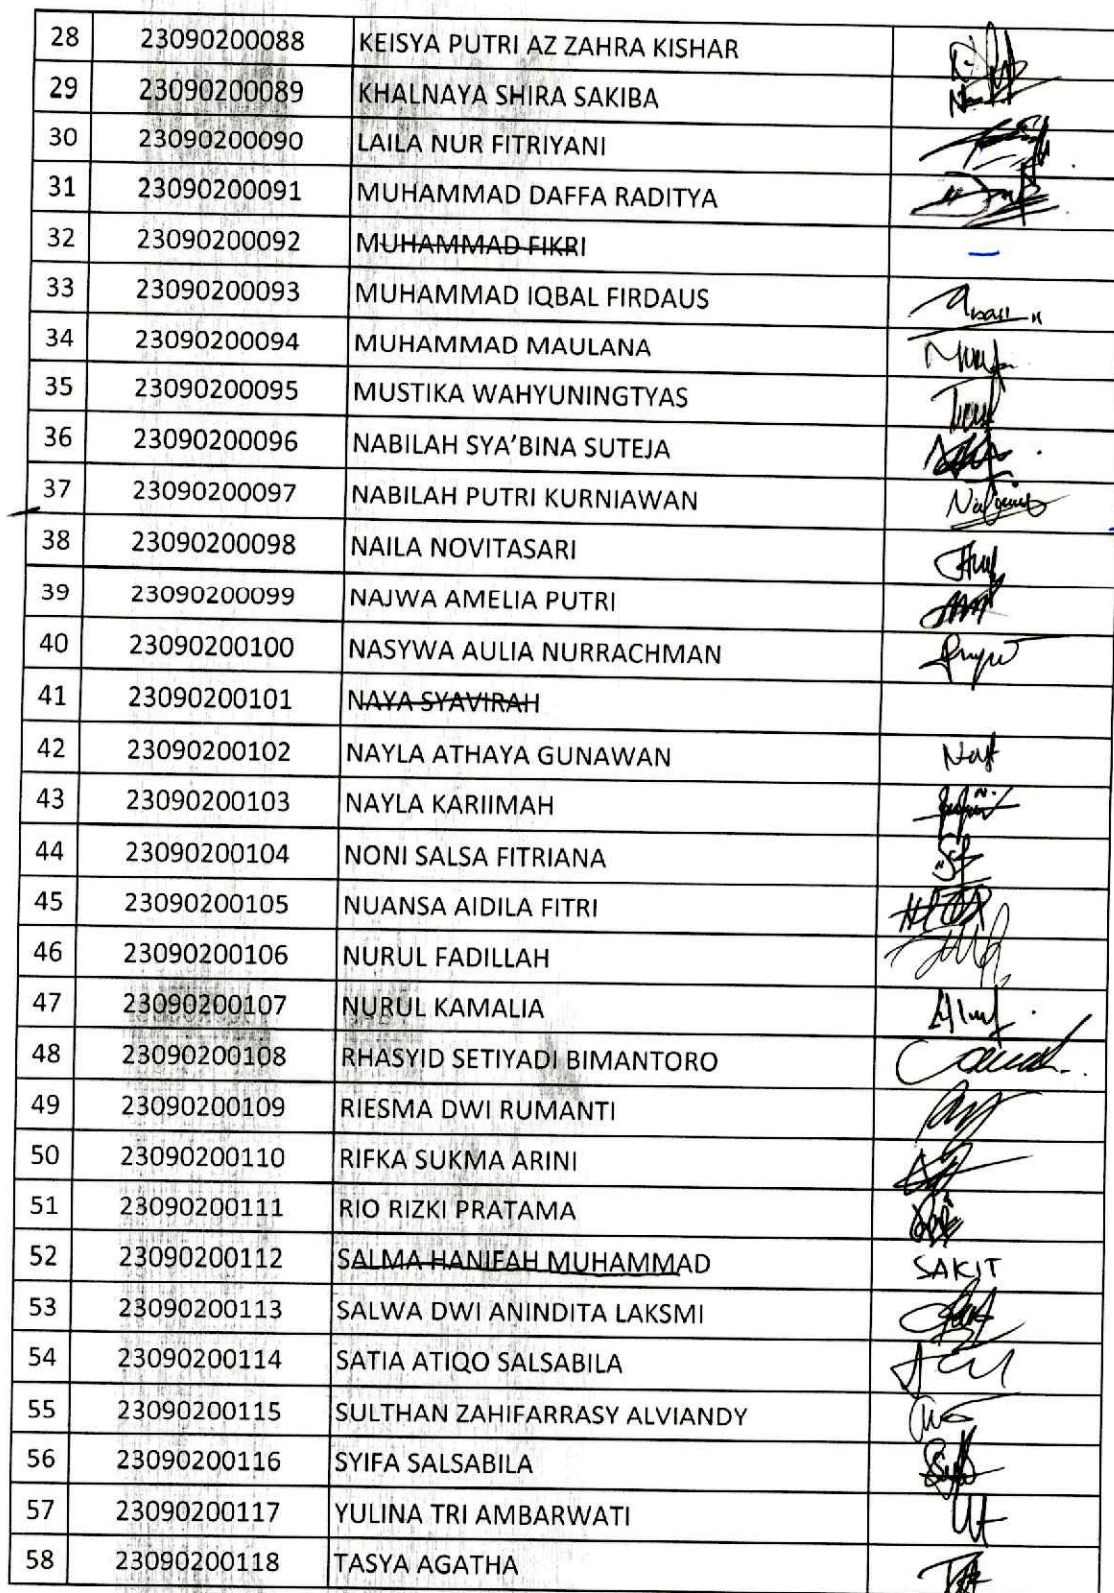 28 23090200088 KEISYA PUTRI AZ ZAHRA KISHAR
29 23090200089 KHALNAYA SHIRA SAKIBA
30 23090200090 LAILA NUR FITRIYANI
31 23090200091 MUHAMMAD DAFFA RADITYA
32 23090200092 MUHAMMAD FIKRI –
33 23090200093 MUHAMMAD IQBAL FIRDAUS
34 23090200094 MUHAMMAD MAULANA
35 23090200095 MUSTIKA WAHYUNINGTYAS
36 23090200096 NABILAH SYA'BINA SUTEJA
37 23090200097 NABILAH PUTRI KURNIAWAN
38 23090200098 NAILA NOVITASARI
39 23090200099 NAJWA AMELIA PUTRI
40 23090200100 NASYWA AULIA NURRACHMAN
41 23090200101 NAYA SYAVIRAH
42 23090200102 NAYLA ATHAYA GUNAWAN
43 23090200103 NAYLA KARIIMAH
44 23090200104 NONI SALSA FITRIANA
45 23090200105 NUANSA AIDILA FITRI
46 23090200106 NURUL FADILLAH
47 23090200107 NURUL KAMALIA
48 23090200108 RHASYID SETIYADI BIMANTORO
49 23090200109 RIESMA DWI RUMANTI
50 23090200110 RIFKA SUKMA ARINI
51 23090200111 RIO RIZKI PRATAMA
52 23090200112 SALMA HANIFAH MUHAMMAD SAKIT
53 23090200113 SALWA DWI ANINDITA LAKSMI
54 23090200114 SATIA ATIQO SALSABILA
55 23090200115 SULTHAN ZAHIFARRASY ALVIANDY
56 23090200116 SYIFA SALSABILA
57 23090200117 YULINA TRI AMBARWATI
58 23090200118 TASYA AGATHA